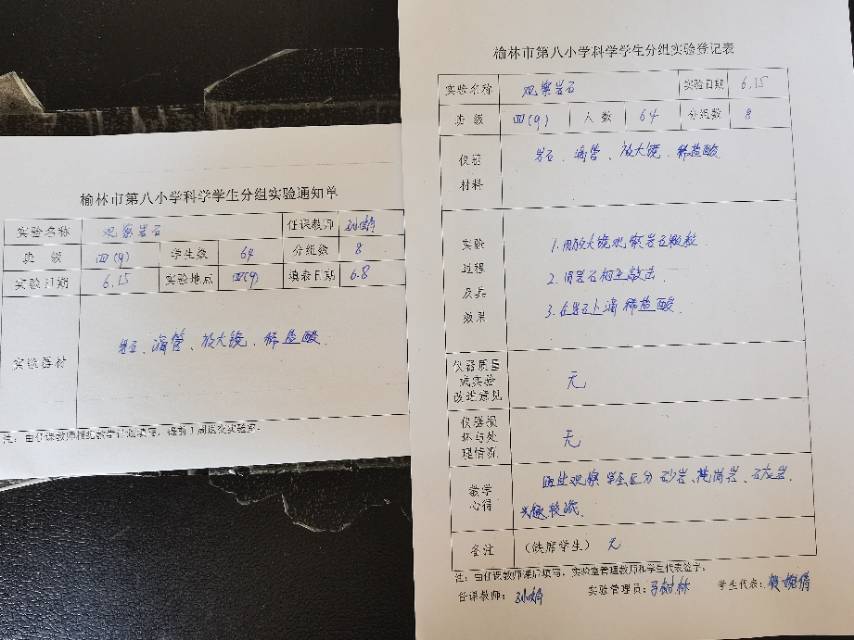 榆林市第八小学科学学生分组实验通知单
实验名称 观察岩石 任课教师
班 级 四(9) 学生数 64 分组数 8
实验日期 6.15 实验地点 四(9) 填表日期 6.8
实验器材 岩石、滴管、放大镜、稀盐酸
榆林市第八小学科学学生分组实验登记表
实验名称 观察岩石 实验日期 6.15
班 级 四(9) 人 数 64 分组数 8
仪器
材料
岩石、滴管、放大镜、稀盐酸
实验
过程
及其
效果
1.用放大镜观察岩石颗粒
2.用岩石相互敲击
3.在岩石上滴稀盐酸
仪器质量
或实验
改进意见
无
仪器损
坏与处
理情况
无
教学
心得
观察 学会区分 砂岩、花岗岩、石灰岩
兴趣较浓
备注 (缺席学生) 无
注:由任课教师课后填写,实验室管理教师和学生代表签字。
任课教师: 实验管理员: 学生代表: